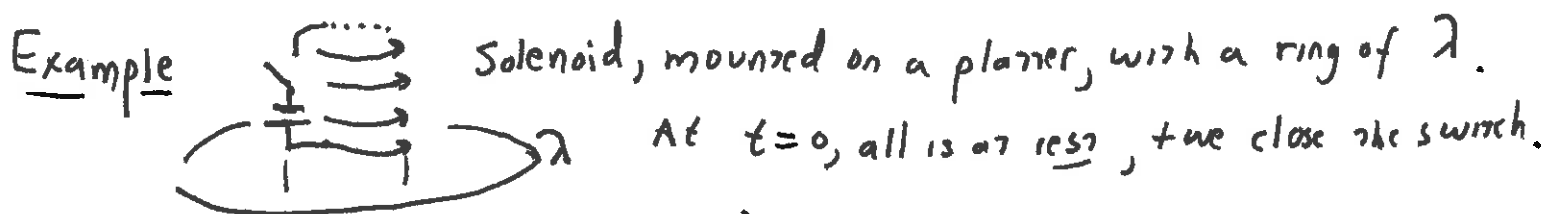 Example Solenoid, mounted on a platter, with a ring of λ.
λ At t=0, all is at rest, + we close the switch.